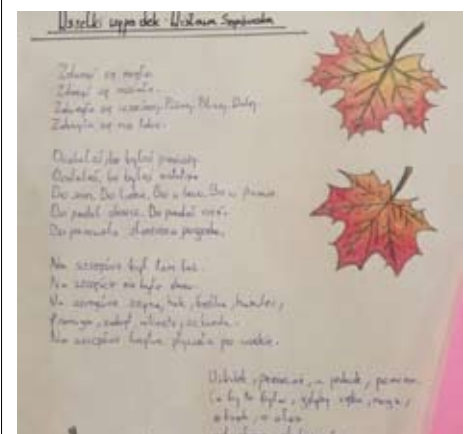 Wszelki wypadek Wisława Szymborska
Zdarzyć się mogło.
Zdarzyć się musiało.
Zdarzyło się wcześniej. Później. Bliżej. Dalej.
Zdarzyło się nie tobie.
Ocalałeś, bo byłeś pierwszy.
Ocalałeś, bo byłeś ostatni.
Bo sam. Bo ludzie. Bo w lewo. Bo w prawo.
Bo padał deszcz. Bo padał cień.
Bo panowała słoneczna pogoda.
Na szczęście był tam las.
Na szczęście nie było drzew.
Na szczęście szyna, hak, belka, hamulec,
framuga, zakręt, milimetr, sekunda.
Na szczęście brzytwa pływała po wodzie.
Wskutek, ponieważ, a jednak, pomimo.
Co by to było, gdyby ręka, noga,
o krok, o włos